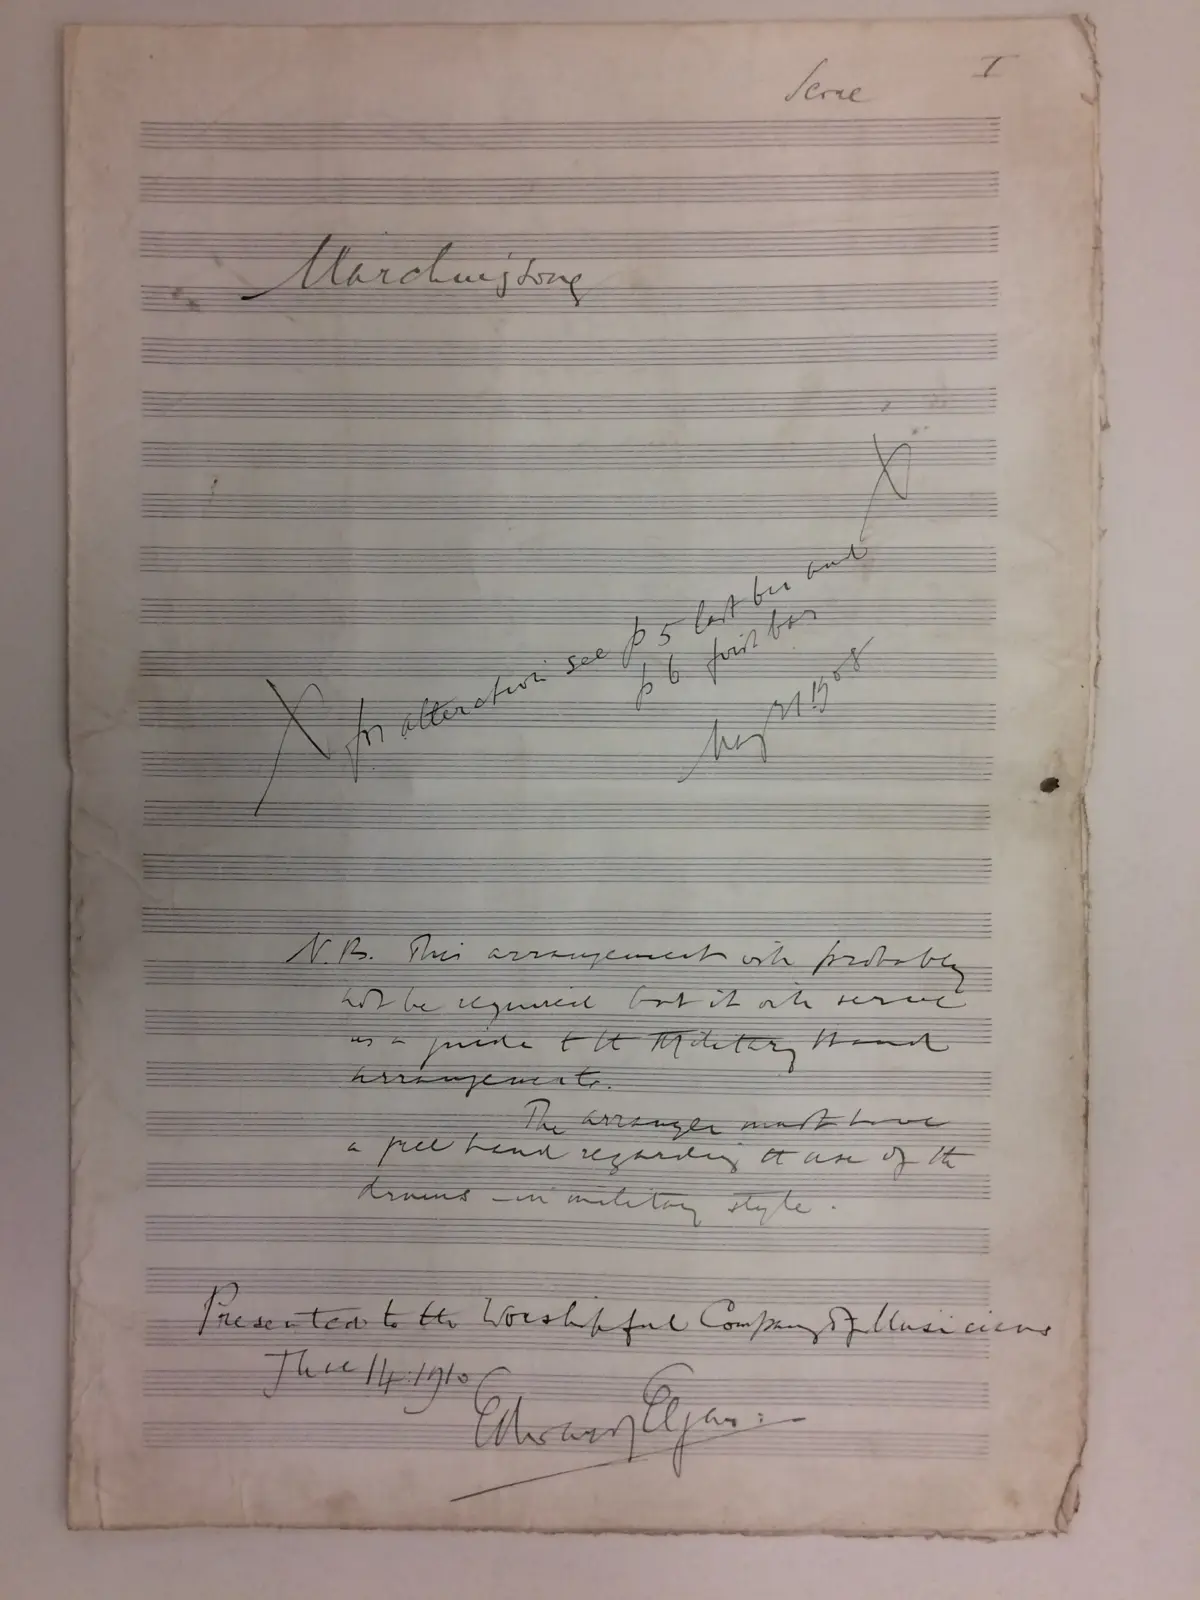 I
Score
Marching Song
X for alteration see p 5 last bar and X
p 6 first bar
May 21 1908
N.B. This arrangement will probably
not be required but it will serve
as a guide to the Military Band
arrangement.
The arranger must have
a free hand regarding the use of the
drums – in military style.
Presented to the Worshipful Company of Musicians
June 14: 1910
Edward Elgar: